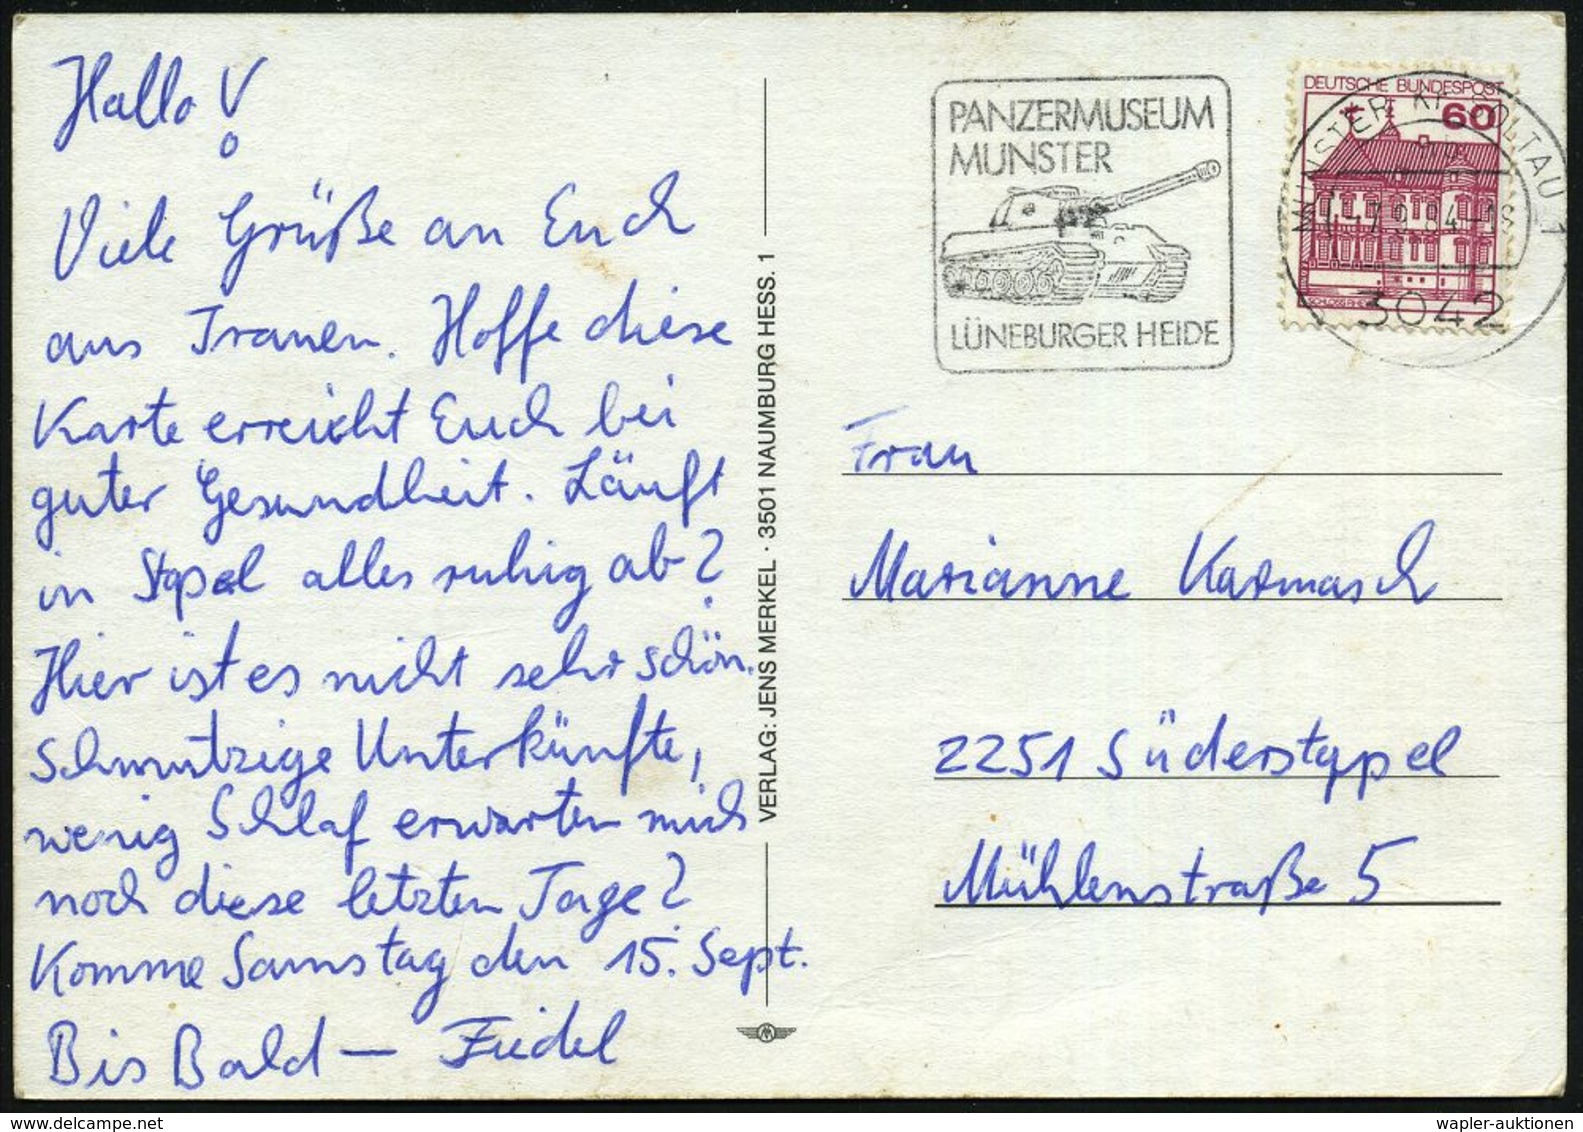 Hallo!
Viele Grüße an Euch
aus Trauen. Hoffe diese
Karte erreicht Euch bei
guter Gesundheit. Läuft
in Stapel alles ruhig ab?
Hier ist es nicht sehr schön.
Schmutzige Unterkünfte,
wenig Schlaf erwarten mich
noch diese letzten Tage?
Komme Samstag den 15. Sept.
Bis Bald — Friedel
VERLAG: JENS MERKEL · 3501 NAUMBURG HESS. 1
PANZERMUSEUM
MUNSTER
LÜNEBURGER HEIDE
DEUTSCHE BUNDESPOST
60
MUNSTER, KR SOLTAU 1
-7.9.84-18
3042
Frau
Marianne Karmasch
2251 Süderstapel
Mühlenstraße 5
wapler-auktionen